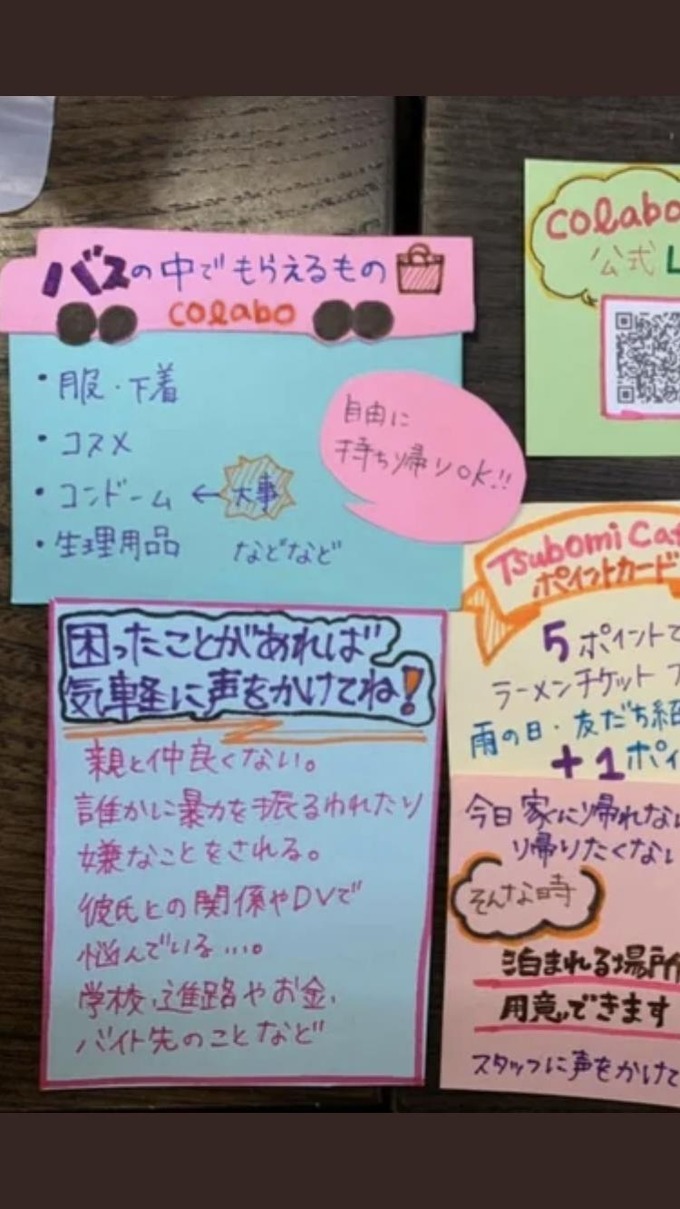 バスの中でもらえるもの
colabo
・服・下着
・コスメ
・コンドーム ← 大事
・生理用品 などなど
自由に
持ち帰りOK!!
困ったことがあれば
気軽に声をかけてね!
親と仲良くない。
誰かに暴力を振るわれたり
嫌なことをされる。
彼氏との関係やDVで
悩んでいる…。
学校、進路やお金、
バイト先のことなど
colabo
公式 L
Tsubomi Caf
ポイントカード
5ポイントで
ラーメンチケット
雨の日・友だち紹
+1ポイ
今日家に帰れない
帰りたくない
そんな時
泊まれる場所
用意できます
スタッフに声をかけて